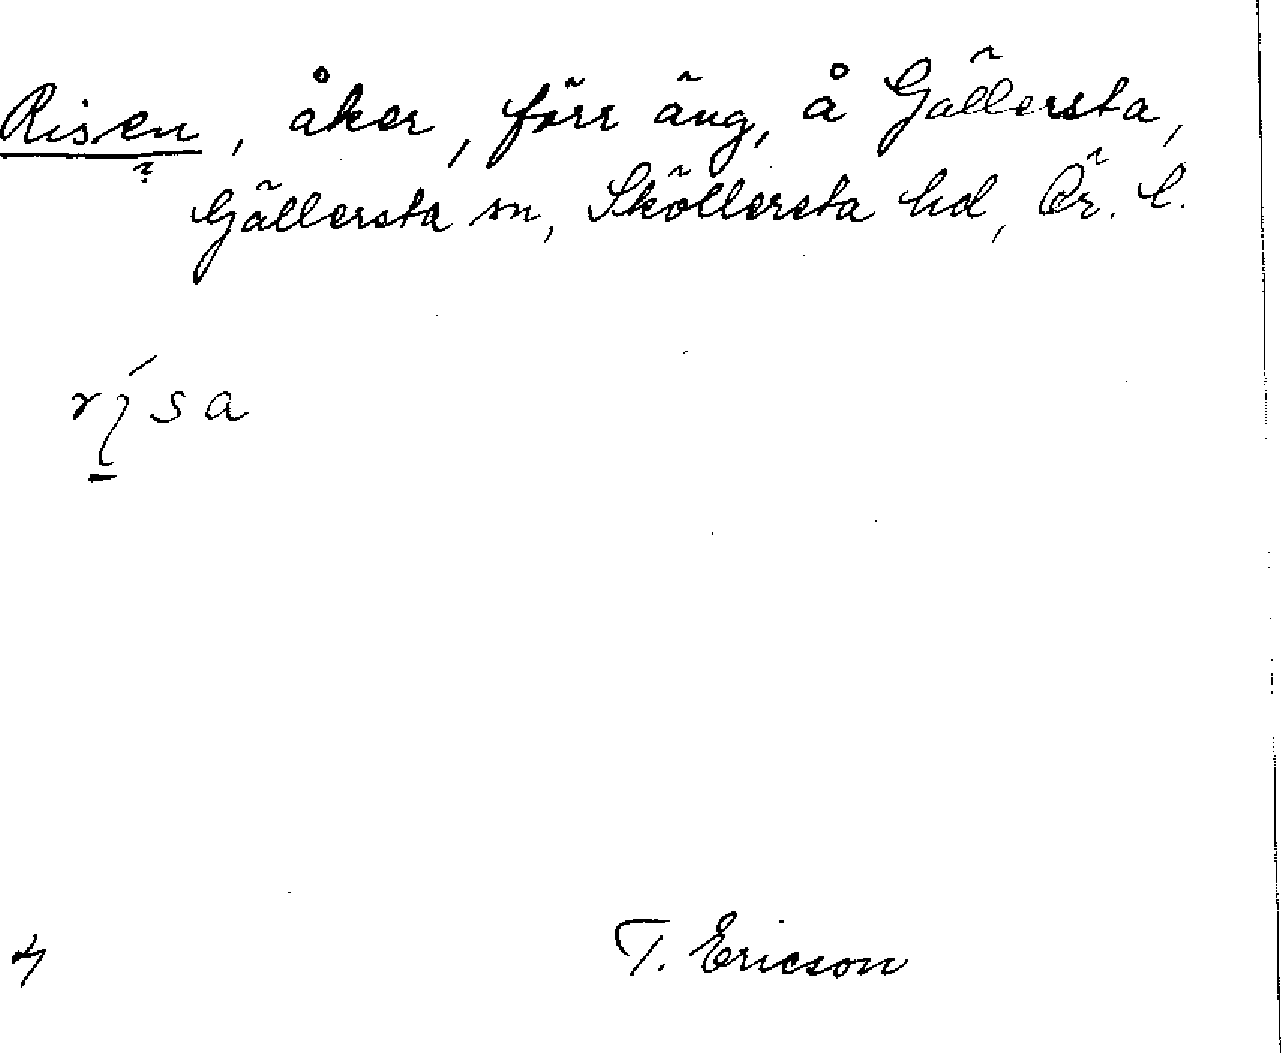 Risen, åker, förr äng, å Gällersta,
?
Gällersta sn, Sköllersta hd, Ör. l.
T. Ericson